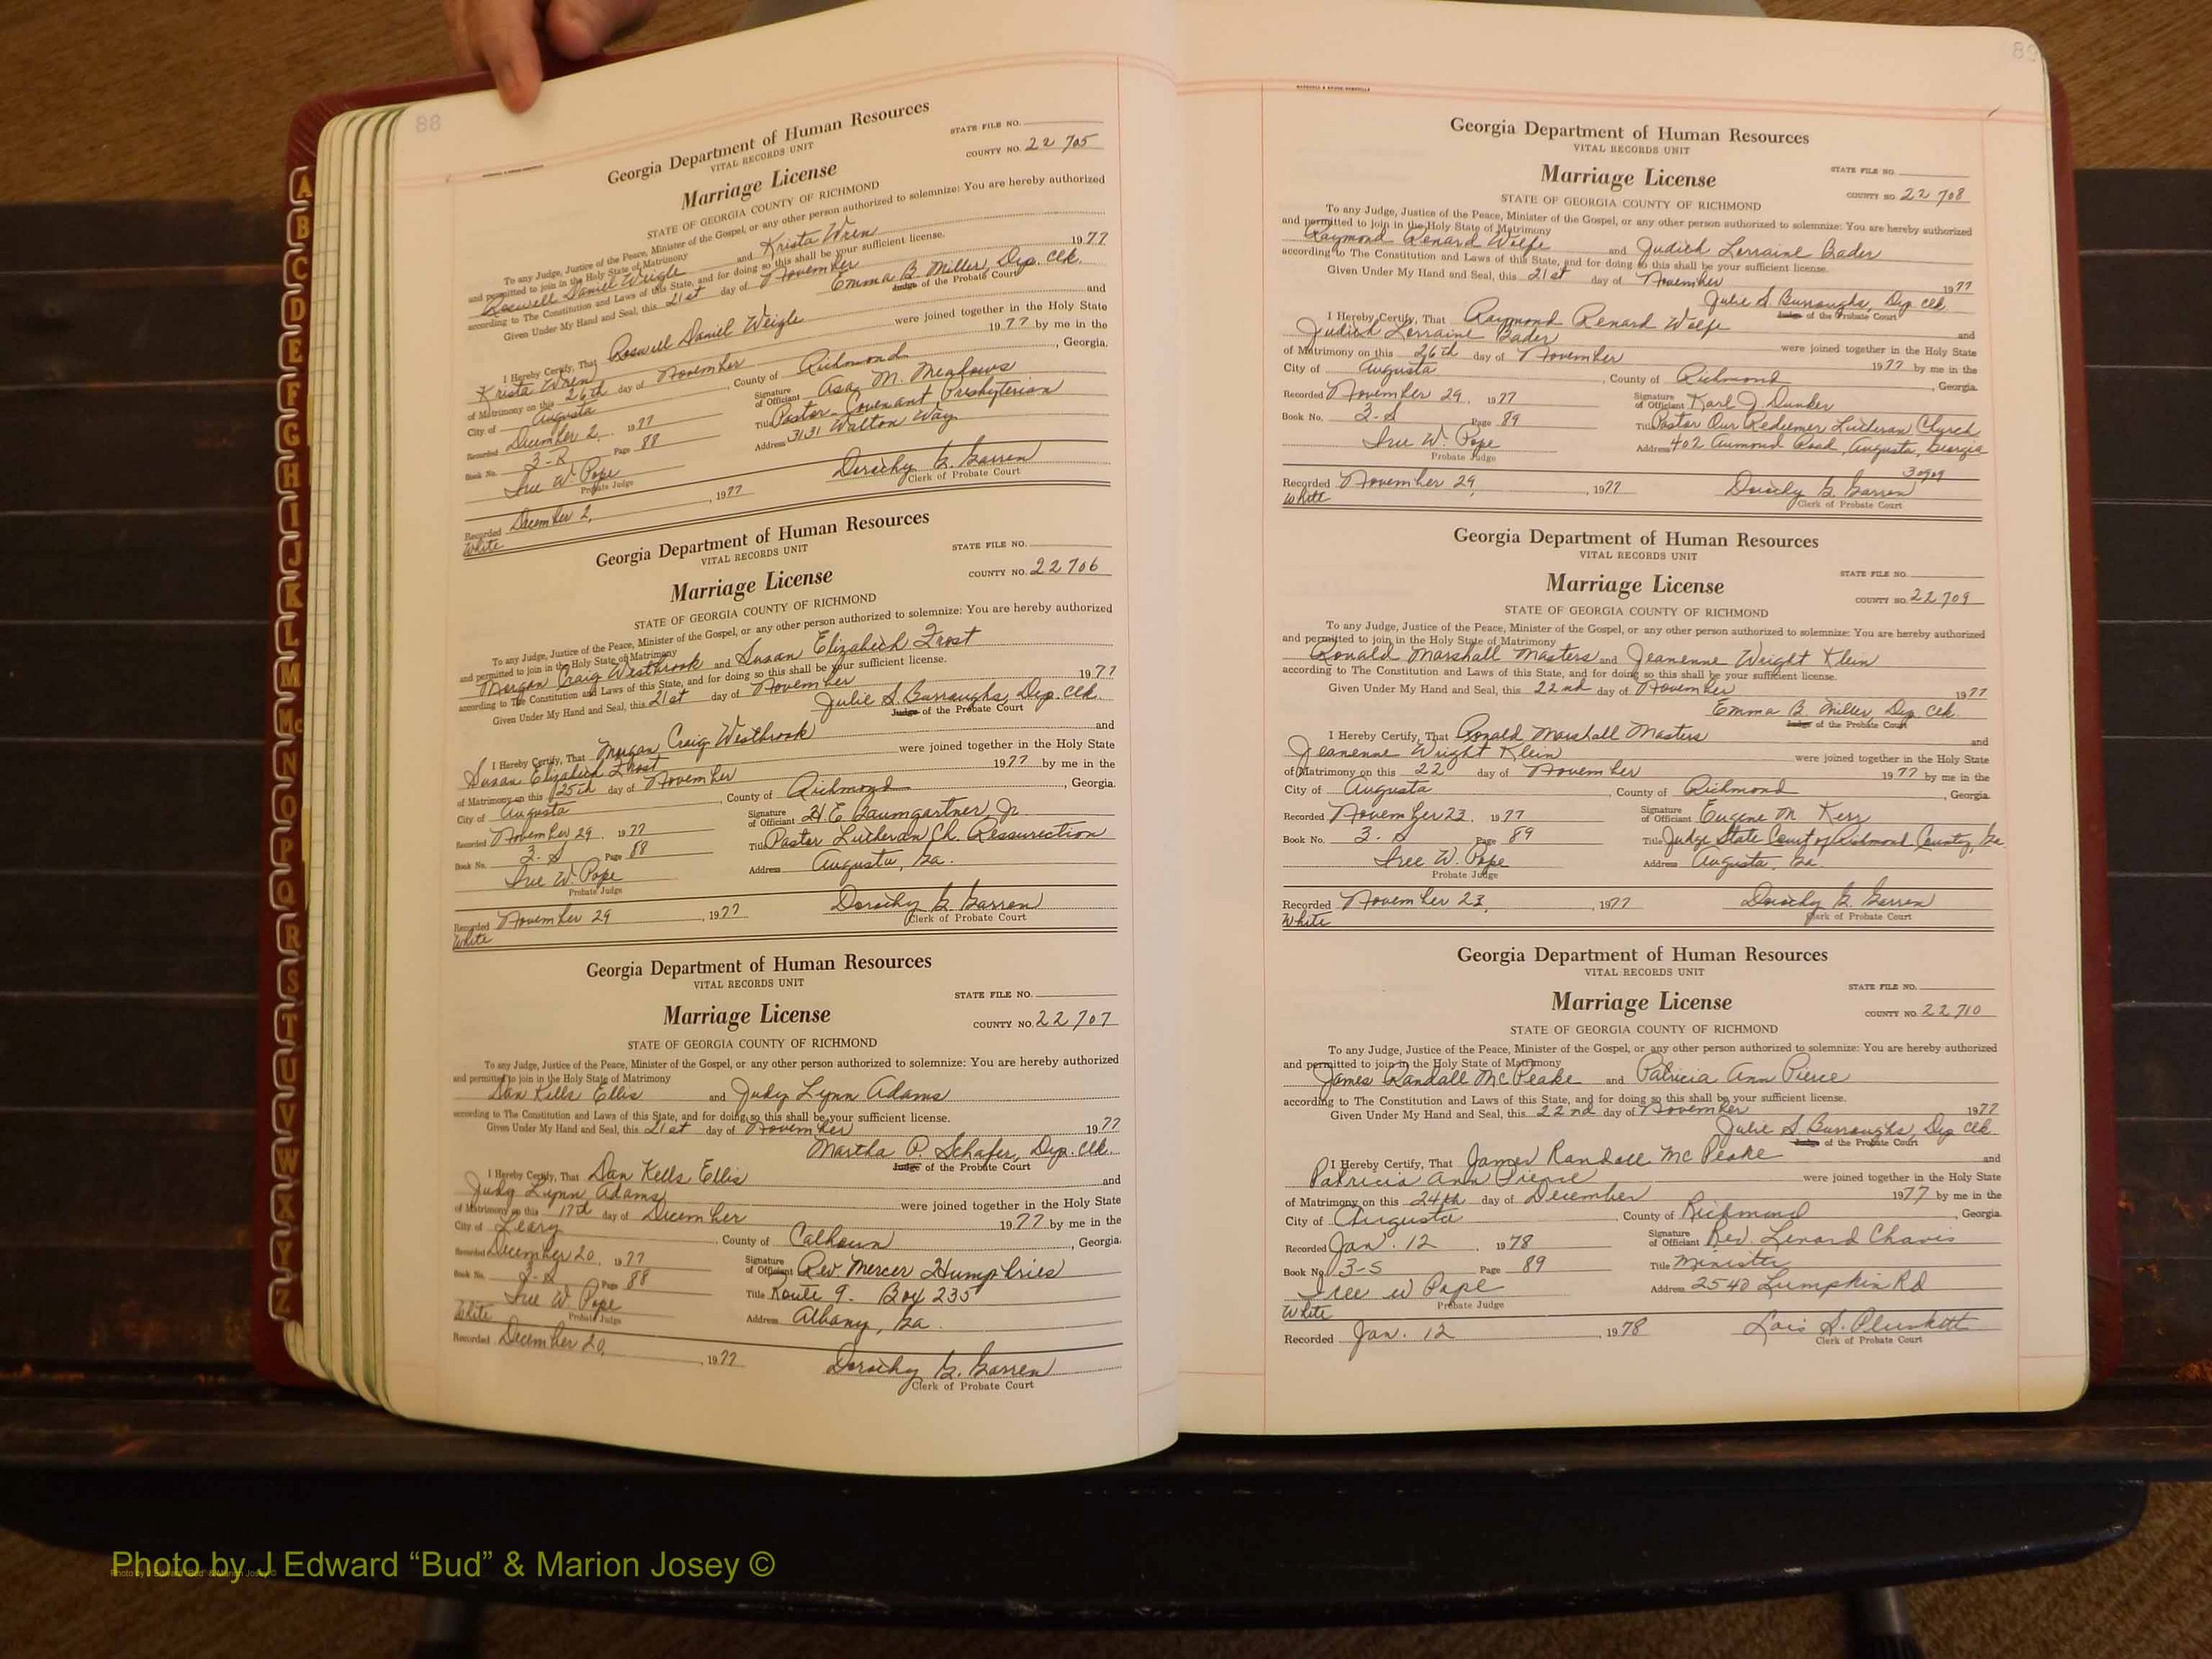 88
Georgia Department of Human Resources
VITAL RECORDS UNIT
STATE FILE NO.
Marriage License
COUNTY NO. 22 705
STATE OF GEORGIA COUNTY OF RICHMOND
To any Judge, Justice of the Peace, Minister of the Gospel, or any other person authorized to solemnize: You are hereby authorized
and permitted to join in the Holy State of Matrimony
Roswell Daniel Weigle and Krista Wren
according to The Constitution and Laws of this State, and for doing so this shall be your sufficient license.
Given Under My Hand and Seal, this 21st day of November 1977
Emma B. Miller, Dep. Clk.
Judge of the Probate Court
I Hereby Certify, That Roswell Daniel Weigle and
Krista Wren were joined together in the Holy State
of Matrimony on this 26th day of November 1977 by me in the
City of Augusta, County of Richmond, Georgia.
Recorded December 2, 1977 Signature of Officiant Asa M. Meadows
Book No. 3-R Page 88 Title Pastor - Covenant Presbyterian
Iree W. Pope Address 3131 Walton Way
Probate Judge
Recorded December 2, 1977 Dorothy G. Garren
White Clerk of Probate Court
Georgia Department of Human Resources
VITAL RECORDS UNIT
STATE FILE NO.
Marriage License
COUNTY NO. 22706
STATE OF GEORGIA COUNTY OF RICHMOND
To any Judge, Justice of the Peace, Minister of the Gospel, or any other person authorized to solemnize: You are hereby authorized
and permitted to join in the Holy State of Matrimony
Morgan Craig Westbrook and Susan Elizabeth Frost
according to The Constitution and Laws of this State, and for doing so this shall be your sufficient license.
Given Under My Hand and Seal, this 21st day of November 1977
Julie S. Burroughs, Dep. Clk.
Judge of the Probate Court
I Hereby Certify, That Morgan Craig Westbrook and
Susan Elizabeth Frost were joined together in the Holy State
of Matrimony on this 25th day of November 1977 by me in the
City of Augusta, County of Richmond, Georgia.
Recorded November 29. 1977 Signature of Officiant H E Baumgartner Jr
Book No. 3-S Page 88 Title Pastor Lutheran Ch. Ressurection
Iree W. Pope Address Augusta, Ga.
Probate Judge
Recorded November 29, 1977 Dorothy G. Garren
White Clerk of Probate Court
Georgia Department of Human Resources
VITAL RECORDS UNIT
STATE FILE NO.
Marriage License
COUNTY NO. 22707
STATE OF GEORGIA COUNTY OF RICHMOND
To any Judge, Justice of the Peace, Minister of the Gospel, or any other person authorized to solemnize: You are hereby authorized
and permitted to join in the Holy State of Matrimony
Dan Kells Ellis and Judy Lynn Adams
according to The Constitution and Laws of this State, and for doing so this shall be your sufficient license.
Given Under My Hand and Seal, this 21st day of November 1977
Martha P. Schafer, Dep. Clk.
Judge of the Probate Court
I Hereby Certify, That Dan Kells Ellis and
Judy Lynn Adams were joined together in the Holy State
of Matrimony on this 17th day of December 1977 by me in the
City of Leary, County of Calhoun, Georgia.
Recorded December 20. 1977 Signature of Officiant Rev. Mercer Humphries
Book No. Page 88 Title Route 9 - Box 235
Iree W. Pope Address Albany, Ga.
White Probate Judge
Recorded December 20, 1977 Dorothy G. Garren
Clerk of Probate Court
89
Georgia Department of Human Resources
VITAL RECORDS UNIT
STATE FILE NO.
Marriage License
COUNTY NO. 22 708
STATE OF GEORGIA COUNTY OF RICHMOND
To any Judge, Justice of the Peace, Minister of the Gospel, or any other person authorized to solemnize: You are hereby authorized
and permitted to join in the Holy State of Matrimony
Raymond Renard Wolfe and Judith Lorraine Bader
according to The Constitution and Laws of this State, and for doing so this shall be your sufficient license.
Given Under My Hand and Seal, this 21st day of November 1977
Julie S. Burroughs, Dep Clk.
Judge of the Probate Court
I Hereby Certify, That Raymond Renard Wolfe and
Judith Lorraine Bader were joined together in the Holy State
of Matrimony on this 26th day of November 1977 by me in the
City of Augusta, County of Richmond, Georgia.
Recorded November 29. 1977 Signature of Officiant Karl J Dunker
Book No. 3-S Page 89 Title Pastor Our Redeemer Lutheran Church
Iree W. Pope Address 402 Aumond Road, Augusta, Georgia
Probate Judge 30909
Recorded November 29, 1977 Dorothy G. Garren
White Clerk of Probate Court
Georgia Department of Human Resources
VITAL RECORDS UNIT
STATE FILE NO.
Marriage License
COUNTY NO. 22709
STATE OF GEORGIA COUNTY OF RICHMOND
To any Judge, Justice of the Peace, Minister of the Gospel, or any other person authorized to solemnize: You are hereby authorized
and permitted to join in the Holy State of Matrimony
Ronald Marshall Masters and Jeanenne Wright Klein
according to The Constitution and Laws of this State, and for doing so this shall be your sufficient license.
Given Under My Hand and Seal, this 22nd day of November 1977
Emma B. Miller, Dep Clk.
Judge of the Probate Court
I Hereby Certify, That Ronald Marshall Masters and
Jeanenne Wright Klein were joined together in the Holy State
of Matrimony on this 22 day of November 1977 by me in the
City of Augusta, County of Richmond, Georgia
Recorded November 23. 1977 Signature of Officiant Eugene M Kerr
Book No. 3-S Page 89 Title Judge State Court of Richmond County, Ga
Iree W. Pope Address Augusta, Ga.
Probate Judge
Recorded November 23, 1977 Dorothy G. Garren
White Clerk of Probate Court
Georgia Department of Human Resources
VITAL RECORDS UNIT
STATE FILE NO.
Marriage License
COUNTY NO. 22710
STATE OF GEORGIA COUNTY OF RICHMOND
To any Judge, Justice of the Peace, Minister of the Gospel, or any other person authorized to solemnize: You are hereby authorized
and permitted to join in the Holy State of Matrimony
James Randall McPeake and Patricia Ann Pierce
according to The Constitution and Laws of this State, and for doing so this shall be your sufficient license.
Given Under My Hand and Seal, this 22nd day of November 1977
Julie S Burroughs, Dep Clk.
Judge of the Probate Court
I Hereby Certify, That James Randall McPeake and
Patricia Ann Pierce were joined together in the Holy State
of Matrimony on this 24th day of December 1977 by me in the
City of Augusta, County of Richmond, Georgia.
Recorded Jan. 12, 1978 Signature of Officiant Rev. Lenard Chavis
Book No. 3-S Page 89 Title Minister
Iree W Pope Address 2540 Lumpkin Rd
White Probate Judge
Recorded Jan. 12, 1978 Lois S. Plunkett
Clerk of Probate Court
A
B
C
D
E
F
G
H
I
J
K
L
M
Mc
N
O
P
Q
R
S
T
U
V
W
X
Y
Z
Photo by J Edward “Bud” & Marion Josey ©
Photo by J Edward "Bud" & Marion Josey ©